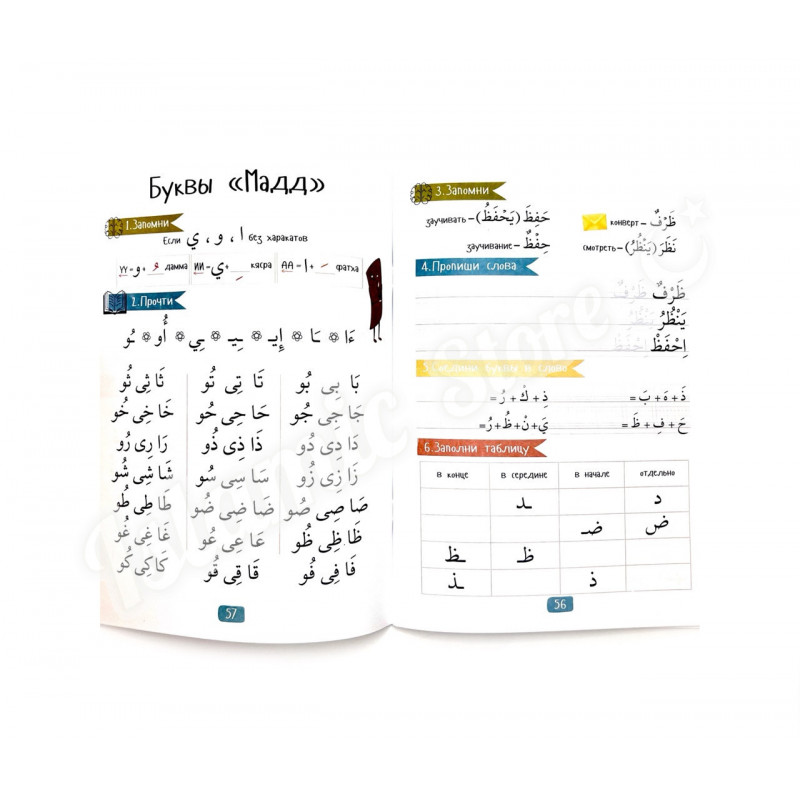 3.Запомни
ظَرْفٌ – конверт
حَفِظَ (يَحْفَظُ) – заучивать
نَظَرَ (يَنْظُرُ) – смотреть
حِفْظٌ – заучивание
4.Пропиши слова
ظَرْفٌ ظَرْفٌ
يَنْظُرُ يَنْظُرُ
اِحْفَظْ اِحْفَظْ
ذَ + هَ + بَ =
ذِ + كْ + رُ =
حَ + فِ + ظَ =
يَ + نْ + ظُ + رُ =
6.Заполни таблицу
в конце в середине в начале отдельно
ـد د
ضـ ض
ـظ ظ
ـذ ذ
56
Буквы «Мадд»
1.Запомни
Если ا ، و ، ي без харакатов
АА – ا + َ фатха
ИИ – ي + ِ кясра
УУ – و + ُ дамма
2.Прочти
ءَا ۞ ـَا ۞ إِيـ ۞ ـِيـ ۞ ـِي ۞ أُو ۞ ـُو
بَا بِى بُو تَا تِى تُو ثَا ثِى ثُو
جَا جِى جُو حَا حِى حُو خَا خِى خُو
دَا دِى دُو ذَا ذِى ذُو رَا رِى رُو
زَا زِى زُو سَا سِى سُو شَا شِى شُو
صَا صِى صُو ضَا ضِى ضُو طَا طِى طُو
ظَا ظِى ظُو عَا عِى عُو غَا غِى غُو
فَا فِى فُو قَا قِى قُو كَا كِى كُو
57